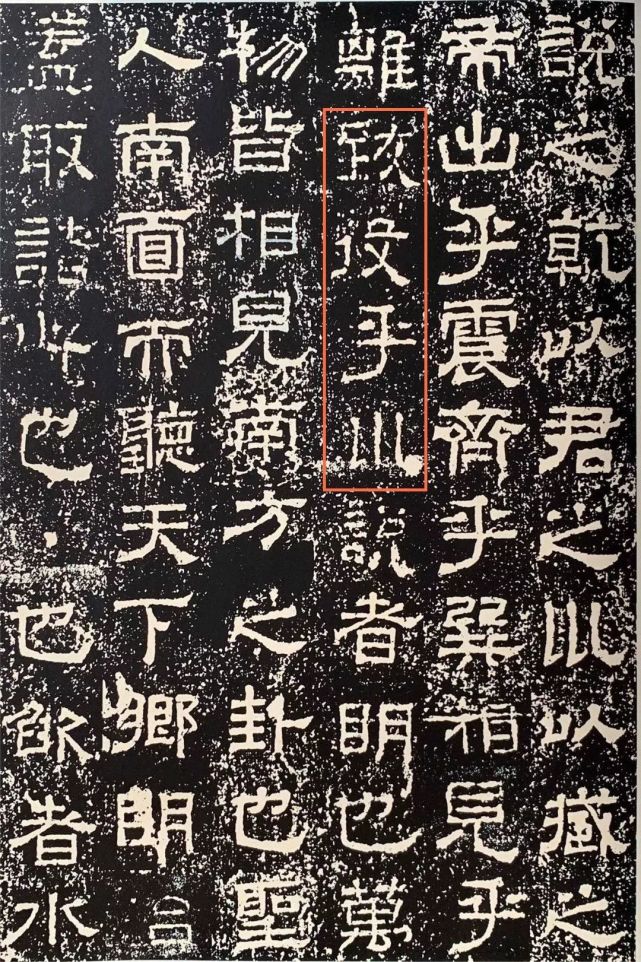 說之乾以君之川以臧之
帝出乎震齊乎巽相見乎
離致役乎川說者明也萬
物皆相見南方之卦也聖
人南面而聽天下鄉明
蓋取諸此也·也欿者水